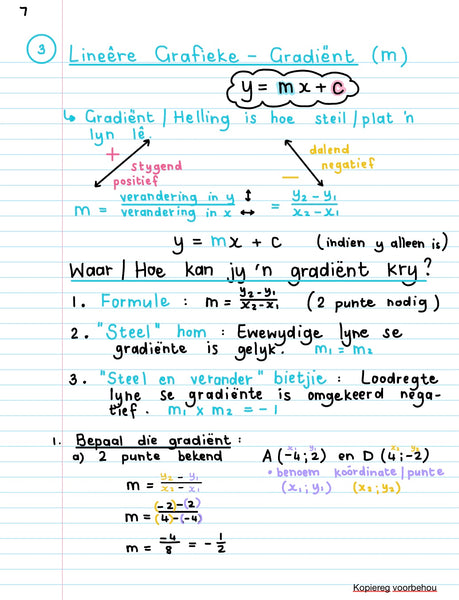 7
3 Lineêre Grafieke - Gradiënt (m)
y = mx + c
↳ Gradiënt / Helling is hoe steil / plat 'n
lyn lê.
+ stygend
positief
dalend
negatief
−
m = verandering in y ↕ / verandering in x ↔ = y₂ - y₁ / x₂ - x₁
y = mx + c (indien y alleen is)
Waar / Hoe kan jy 'n gradiënt kry?
1. Formule : m = y₂-y₁ / x₂-x₁ (2 punte nodig)
2. "Steel" hom : Ewewydige lyne se
gradiënte is gelyk. m₁ = m₂
3. "Steel en verander" bietjie : Loodregte
lyne se gradiënte is omgekeerd nega-
tief. m₁ x m₂ = -1
1. Bepaal die gradiënt :
a) 2 punte bekend A(-4;2) en D(4;-2)
x₁ y₁ x₂ y₂
• benoem koördinate/punte
(x₁;y₁) (x₂;y₂)
m = y₂ - y₁ / x₂ - x₁
m = (-2)-(2) / (4)-(-4)
m = -4/8 = -1/2
Kopiereg voorbehou